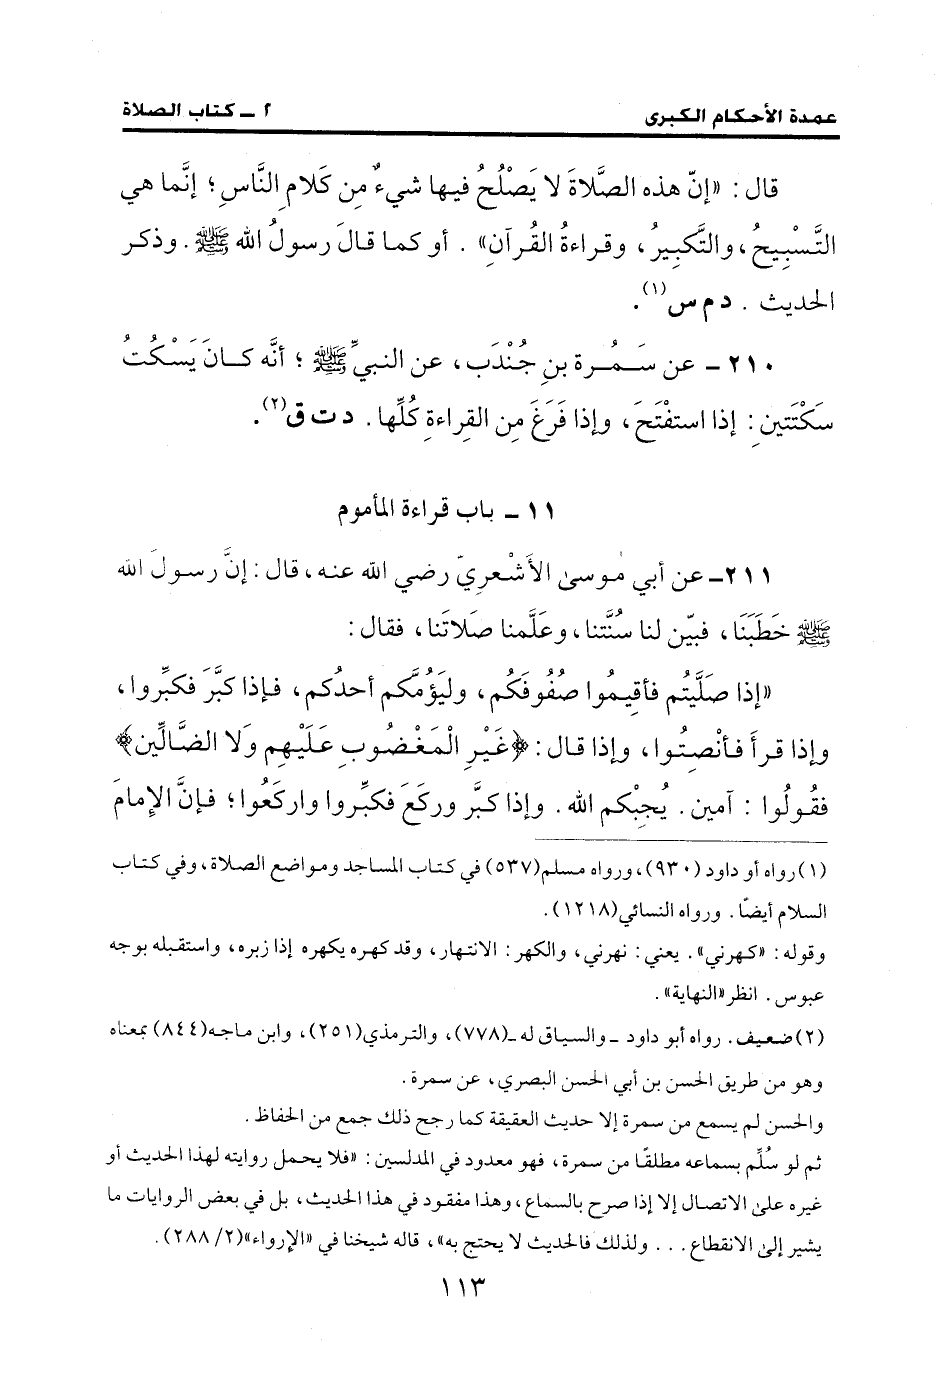 عمدة الأحكام الكبرى
٢ ــ كتاب الصلاة
قال : «إنّ هذه الصَّلاةَ لا يَصْلُحُ فيها شيءٌ مِن كَلامِ النَّاسِ ؛ إنَّما هي
التَّسْبِيحُ ، والتَّكبِيرُ ، وقراءةُ القُرآنِ» . أو كما قالَ رسولُ الله ﷺ . وذكر
الحديث . د م س(١).
٢١٠ ــ عن سَمُرة بنِ جُنْدَب ، عن النبيِّ ﷺ ؛ أنَّه كانَ يَسْكُتُ
سَكْتَتينِ : إذا استفْتَحَ ، وإذا فَرَغَ مِن القِراءةِ كُلِّها . د ت ق(٢).
١١ ــ باب قراءة المأموم
٢١١ ــ عن أبي موسىٰ الأشْعريّ رضي الله عنه ، قال : إنَّ رسولَ الله
ﷺ خَطَبَنَا ، فبيّن لنا سُنَّتنا ، وعَلَّمنا صَلاتَنا ، فقال :
«إذا صَلَّيتُم فأقِيمُوا صُفُوفَكُم ، وليَؤُمَّكم أحدُكم ، فإذا كبَّرَ فكبِّروا ،
وإذا قرأَ فأنْصِتُوا ، وإذا قال : ﴿غَيْرِ الْمَغْضُوبِ عَلَيْهِم ولَا الضَّالِّين﴾
فقُولُوا : آمين . يُجِبْكم الله . وإذا كبَّر وركَعَ فكبِّروا واركَعُوا ؛ فإنَّ الإمامَ
(١) رواه أو داود (٩٣٠) ، ورواه مسلم (٥٣٧) في كتاب المساجد ومواضع الصلاة ، وفي كتاب
السلام أيضًا . ورواه النسائي (١٢١٨) .
وقوله : «كهرني» . يعني : نهرني ، والكهر : الانتهار ، وقد كهره يكهره إذا زبره ، واستقبله بوجه
عبوس . انظر «النهاية» .
(٢) ضعيف . رواه أبو داود ــ والسياق له ــ (٧٧٨) ، والترمذي (٢٥١) ، وابن ماجه (٨٤٤) بمعناه
وهو من طريق الحسن بن أبي الحسن البصري ، عن سمرة .
والحسن لم يسمع من سمرة إلا حديث العقيقة كما رجح ذلك جمع من الحفاظ .
ثم لو سُلِّم بسماعه مطلقًا من سمرة ، فهو معدود في المدلسين : «فلا يحمل روايته لهذا الحديث أو
غيره على الاتصال إلا إذا صرح بالسماع ، وهذا مفقود في هذا الحديث ، بل في بعض الروايات ما
يشير إلى الانقطاع . . . ولذلك فالحديث لا يحتج به» ، قاله شيخنا في «الإرواء» (٢/ ٢٨٨) .
١١٣